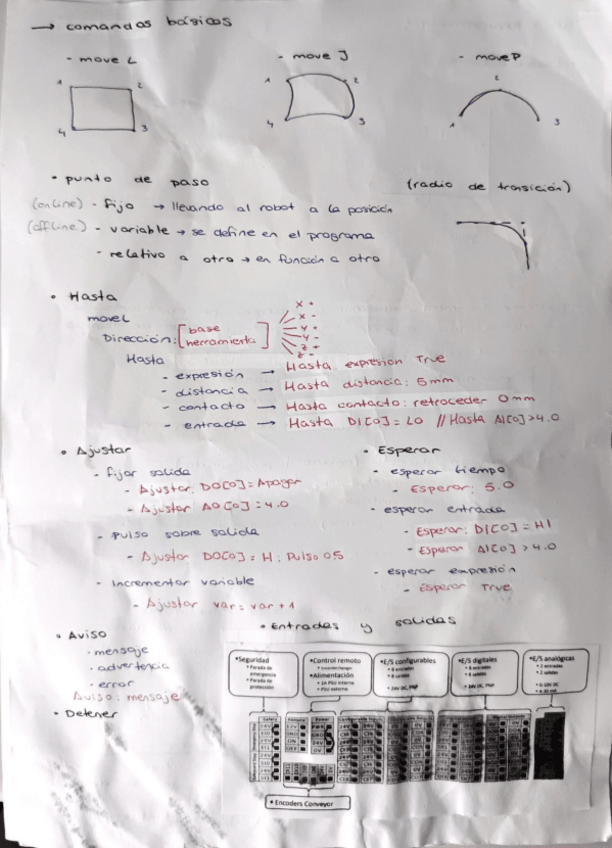 → comandos básicos
- move L
- move J
- moveP
1 2
4 3
1 2
4 3
1 2 3
• punto de paso
(radio de transición)
(online) - fijo → llevando al robot a la posición
(offline) - variable → se define en el programa
- relativo a otro → en función a otro
• Hasta
moveL
Dirección: [base herramienta]
x +
x -
y +
y -
z +
z -
Hasta
- expresión → Hasta expresion True
- distancia → Hasta distancia: 5mm
- contacto → Hasta contacto: retroceder 0mm
- entrada → Hasta DI[0]= LO // Hasta AI[0]>4.0
• Ajustar
- fijar salida
- Ajustar: DO[0]=Apagar
- Ajustar AO[0]=4.0
- Pulso sobre salida
- Ajustar DO[0]= H: Pulso 0S
- Incrementar variable
- Ajustar var = var + 1
• Esperar
- esperar tiempo
- Esperar: 5.0
- esperar entrada
- Esperar: DI[0] = HI
- Esperar AI[0] > 4.0
- esperar expresión
- Esperar True
• Aviso
- mensaje
- advertencia
- error
Aviso: mensaje
• Detener
• Entradas y salidas
•Seguridad
• Parada de emergencia
• Parada de protección
•Control remoto
•Alimentación
•E/S configurables
• 8 entradas
• 8 salidas
• 24V DC, PNP
•E/S digitales
• 8 entradas
• 8 salidas
• 24V DC, PNP
•E/S analógicas
• 2 entradas
• 2 salidas
• 0-10V DC
• 4-20 mA
• Encoders Conveyor